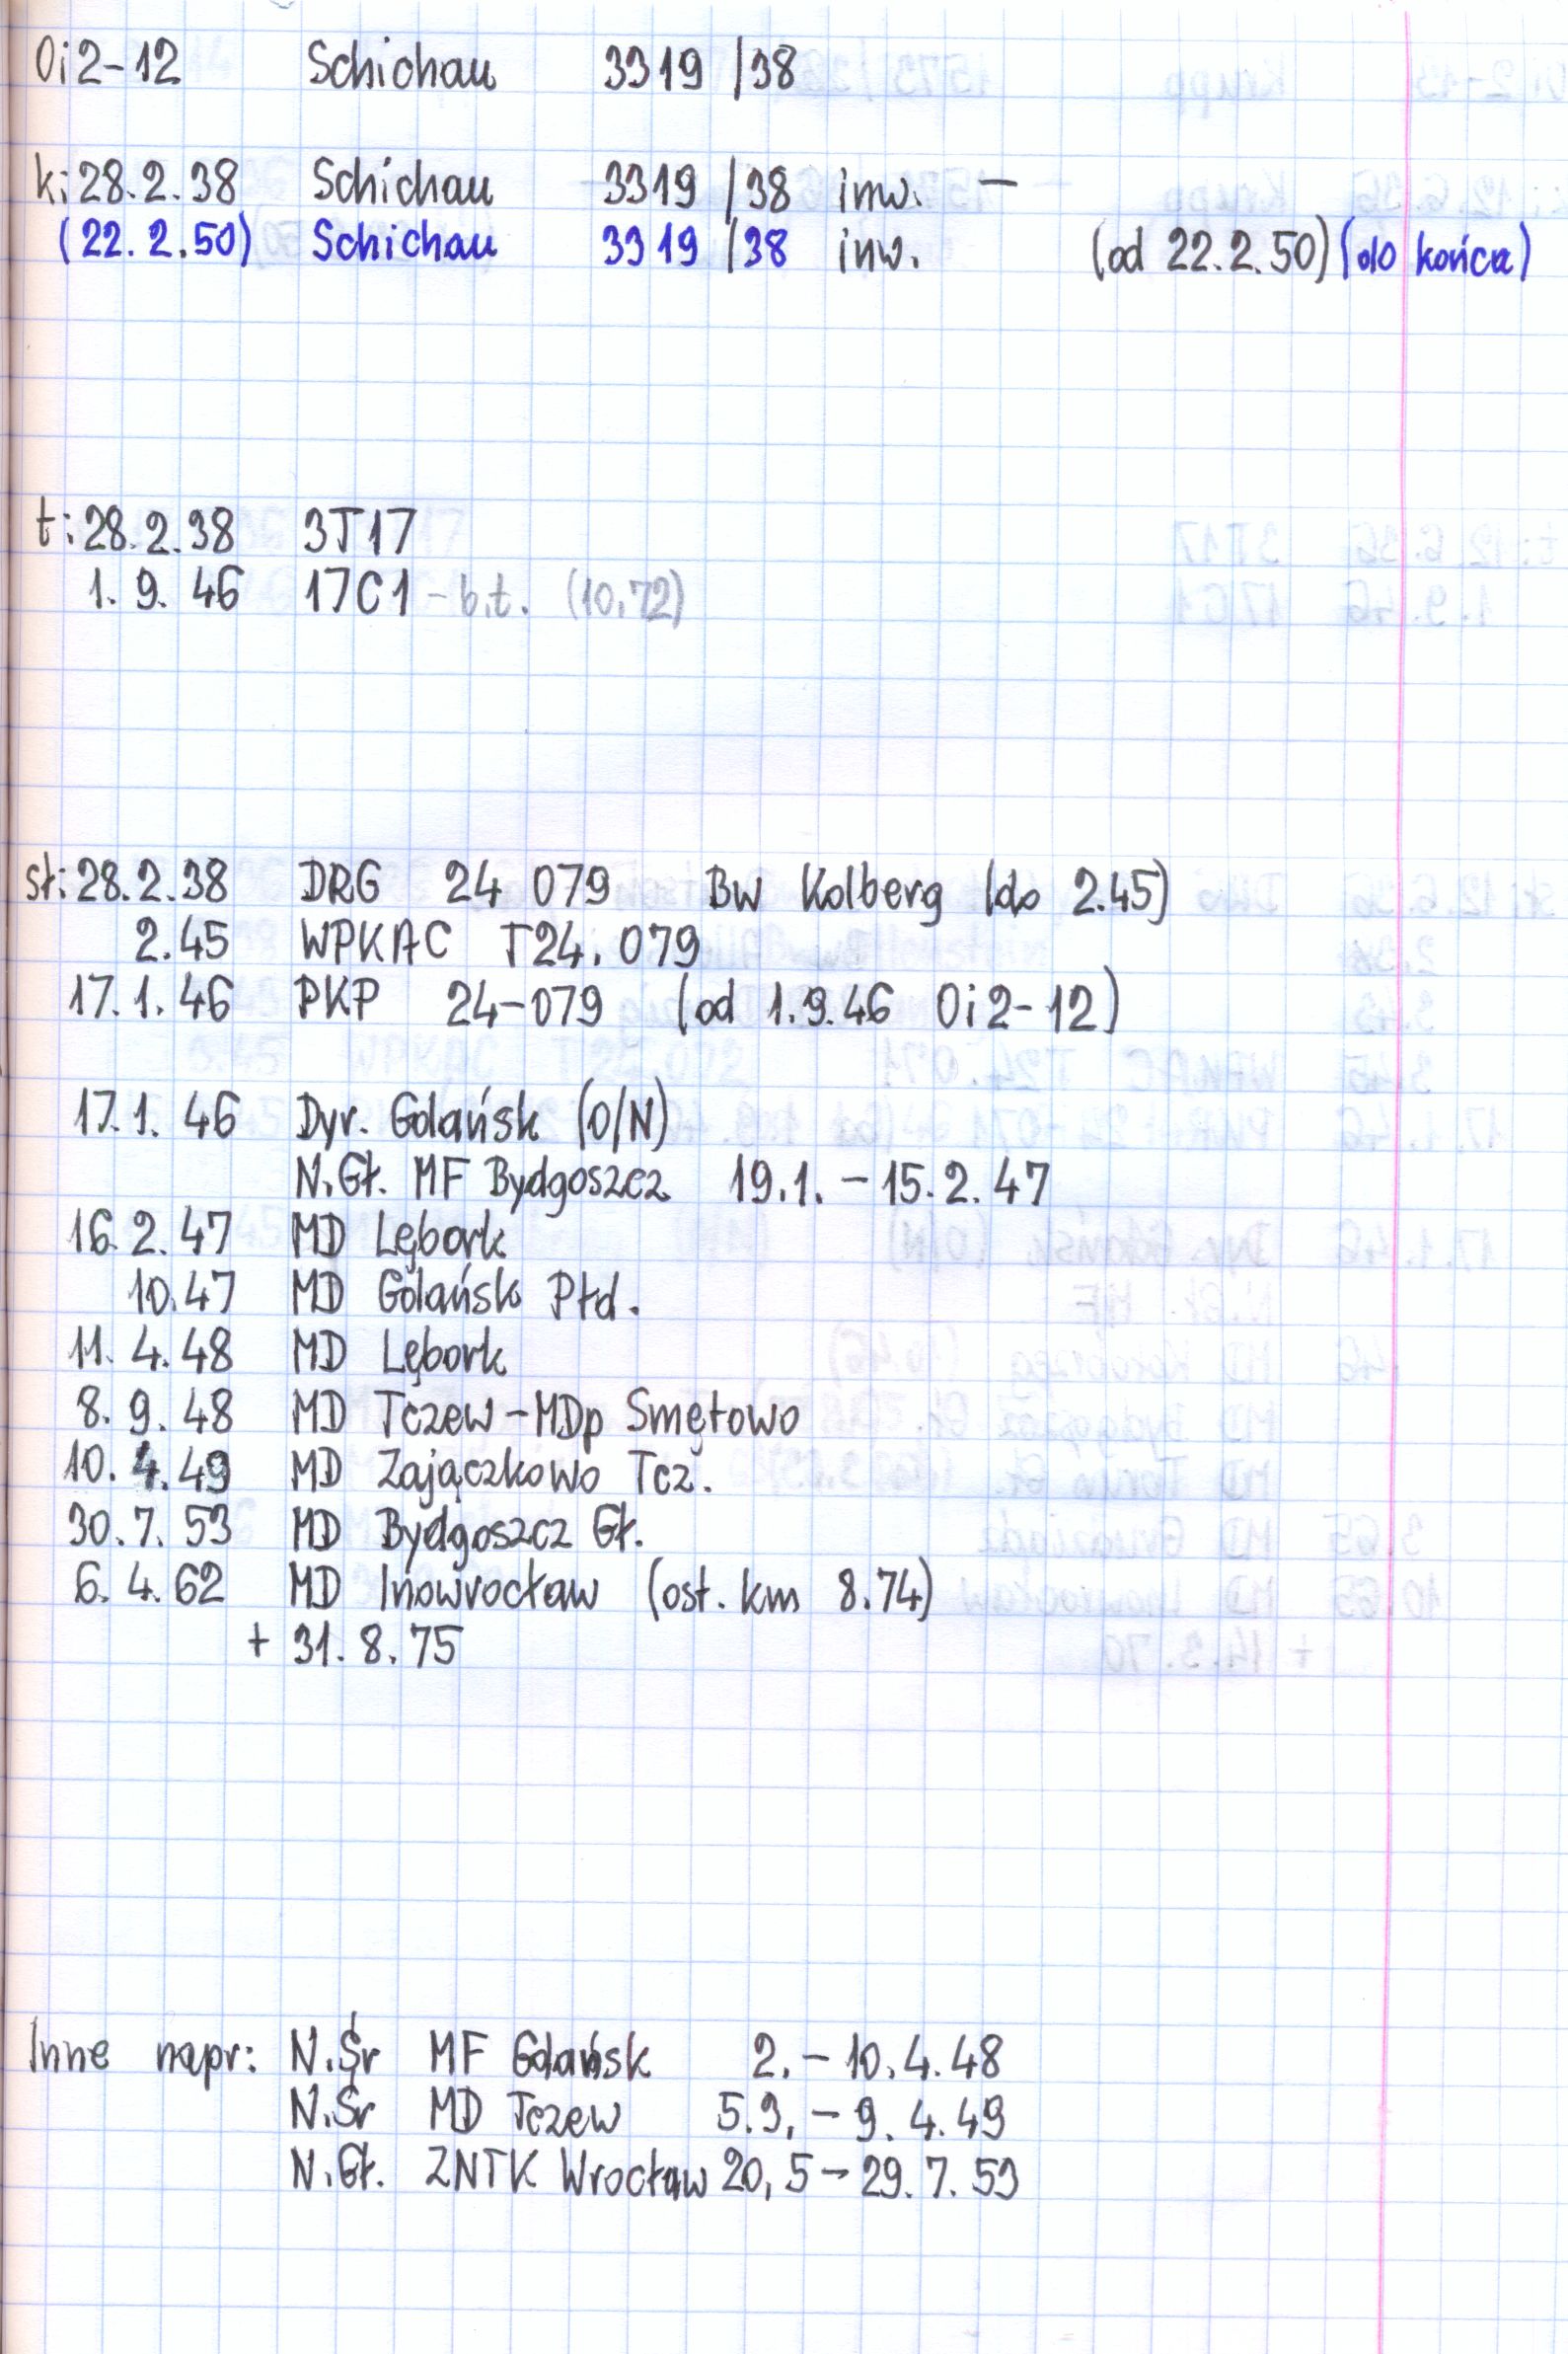 Oi2-12 Schichau 3319/38
k: 28.2.38 Schichau 3319/38 inw. —
(22.2.50) Schichau 3319/38 inw. (od 22.2.50) (do końca)
t: 28.2.38 3T17
1.9.46 17C1 - b.t. (10.72)
st: 28.2.38 DRG 24 079 Bw Kolberg (do 2.45)
2.45 WPKAC T24.079
17.1.46 PKP 24-079 (od 1.9.46 Oi2-12)
17.1.46 Dyr. Gdańsk (O/N)
N.Gł. MF Bydgoszcz 19.1. - 15.2.47
16.2.47 MD Lębork
10.47 MD Gdańsk Płd.
11.4.48 MD Lębork
8.9.48 MD Tczew - MDp Smętowo
10.4.49 MD Zajączkowo Tcz.
30.7.53 MD Bydgoszcz Gł.
6.4.62 MD Inowrocław (ost. km 8.74)
+ 31.8.75
Inne napr: N.Śr MF Gdańsk 2. - 10.4.48
N.Śr MD Tczew 5.3. - 9.4.49
N.Gł. ZNTK Wrocław 20,5 - 29.7.53